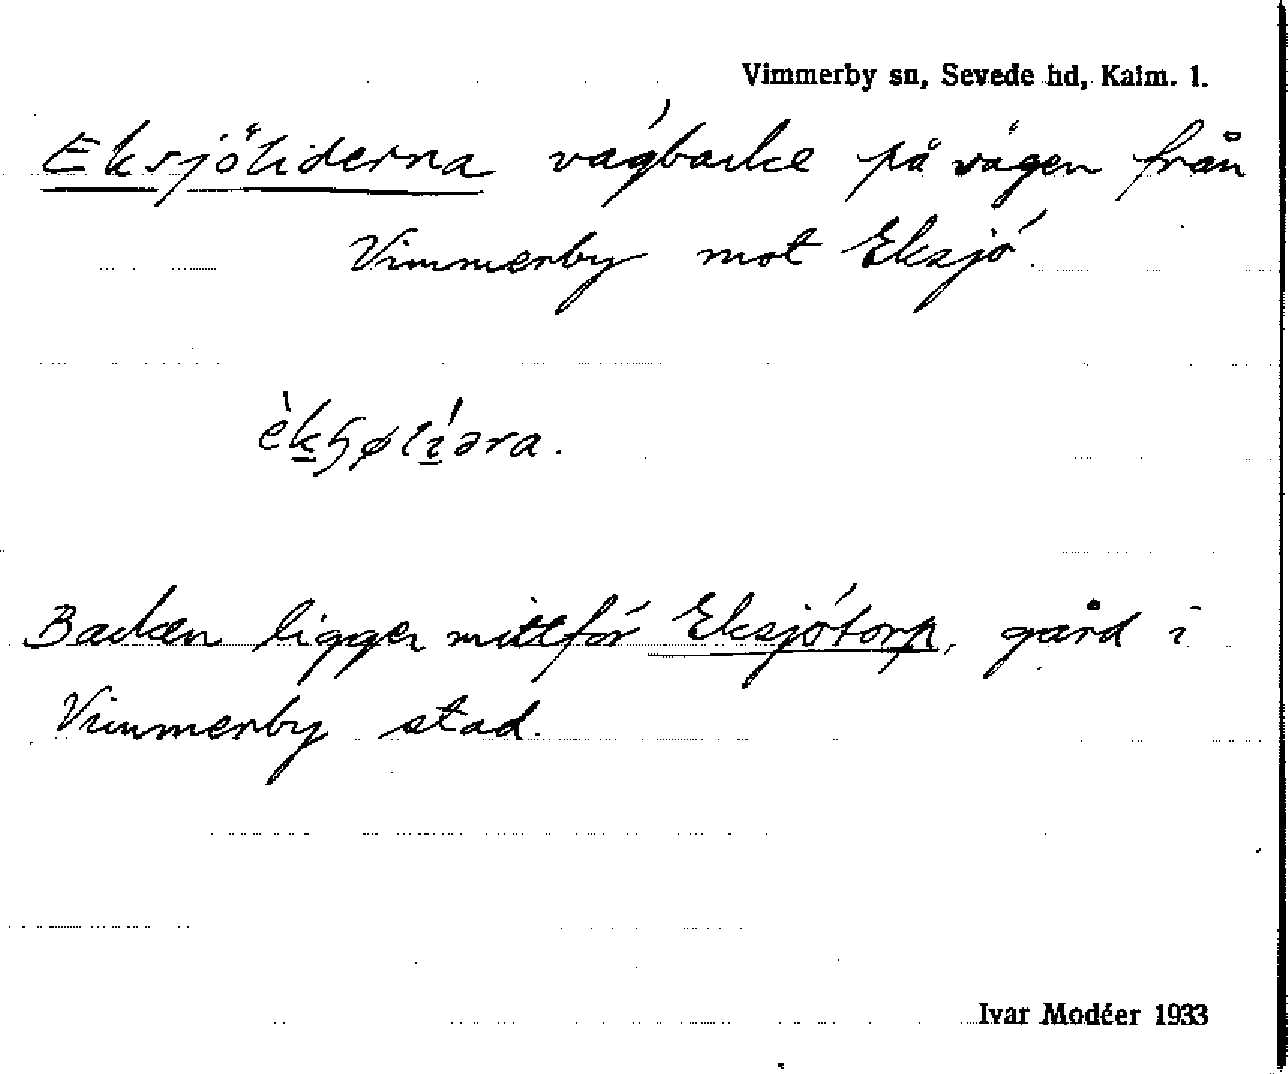 Vimmerby sn, Sevede hd, Kalm. l.
Eksjöliderna vägbacke på vägen från
Vimmerby mot Eksjö.
Backen ligger mittför Eksjötorp, gård i
Vimmerby stad.
Ivar Modéer 1933